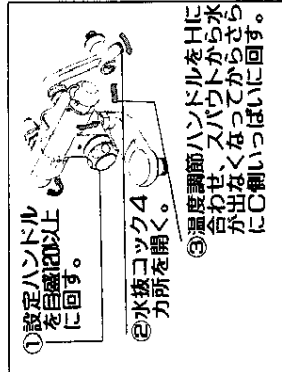 ①設定ハンドル
を目盛120以上
に回す。
②水抜コック4
カ所を開く。
③温度調節ハンドルをHに
合わせ、スパウトから水
が出なくなってからさら
にC側いっぱいに回す。